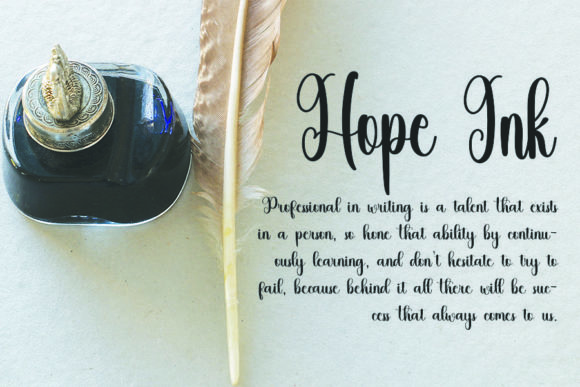 Hope Ink
Professional in writing is a talent that exists
in a person, so hone that ability by continu-
ously learning, and don't hesitate to try to
fail, because behind it all there will be suc-
cess that always comes to us.